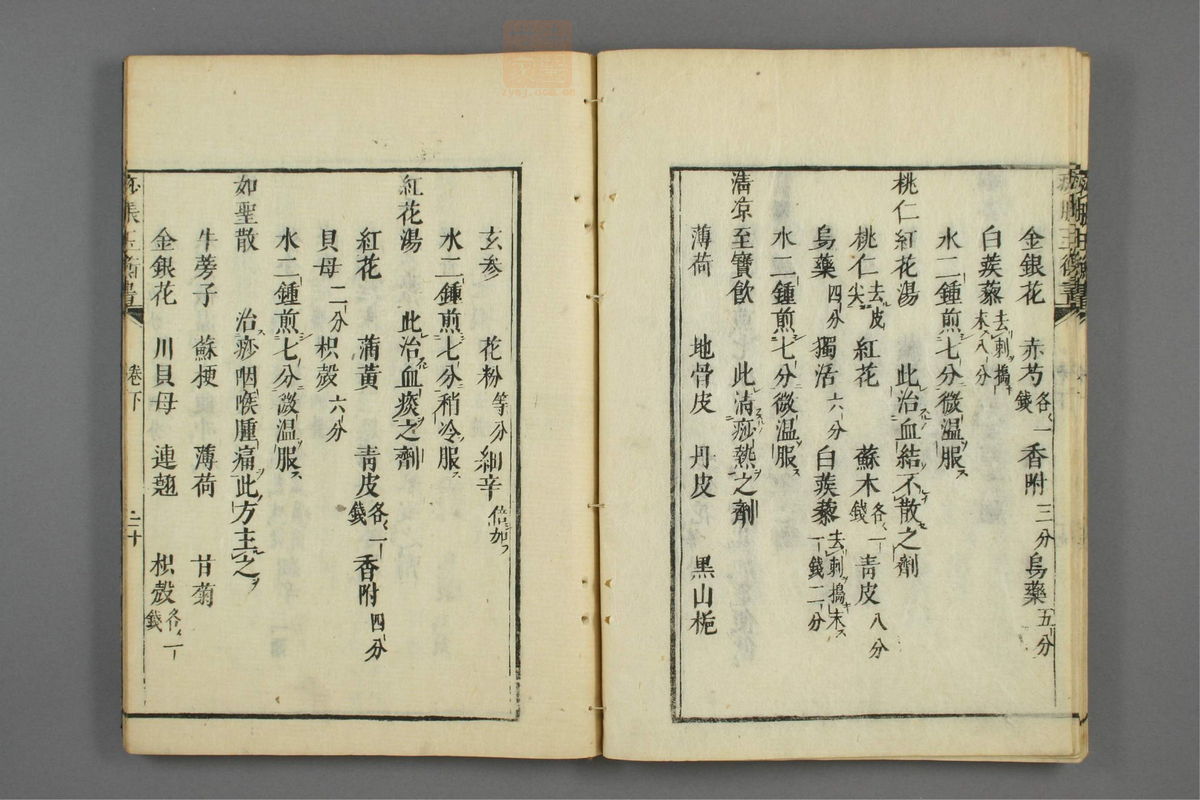 金銀花　赤芍各一錢　香附三分　烏藥五分
白蒺藜去刺搗末八分
水二鍾煎七分微温服
桃仁紅花湯　此治血結不散之劑
桃仁去皮尖　紅花　蘇木各一錢　青皮八分
烏藥四分　獨活六分　白蒺藜去刺搗末一錢二分
水二鍾煎七分微温服
清凉至寳飲　此清痧熱之劑
薄荷　地骨皮　丹皮　黒山梔
玄参　花粉等分　細辛倍加
水二鍾煎七分稍冷服
紅花湯　此治血痰之劑
紅花　蒲黄　青皮各一錢　香附四分
貝母二分　枳殻六分
水二鍾煎七分微温服
如聖散　治痧咽喉腫痛此方主之
牛蒡子　蘇梗　薄荷　甘菊
金銀花　川貝母　連翹　枳殻各一錢
卷下　二十